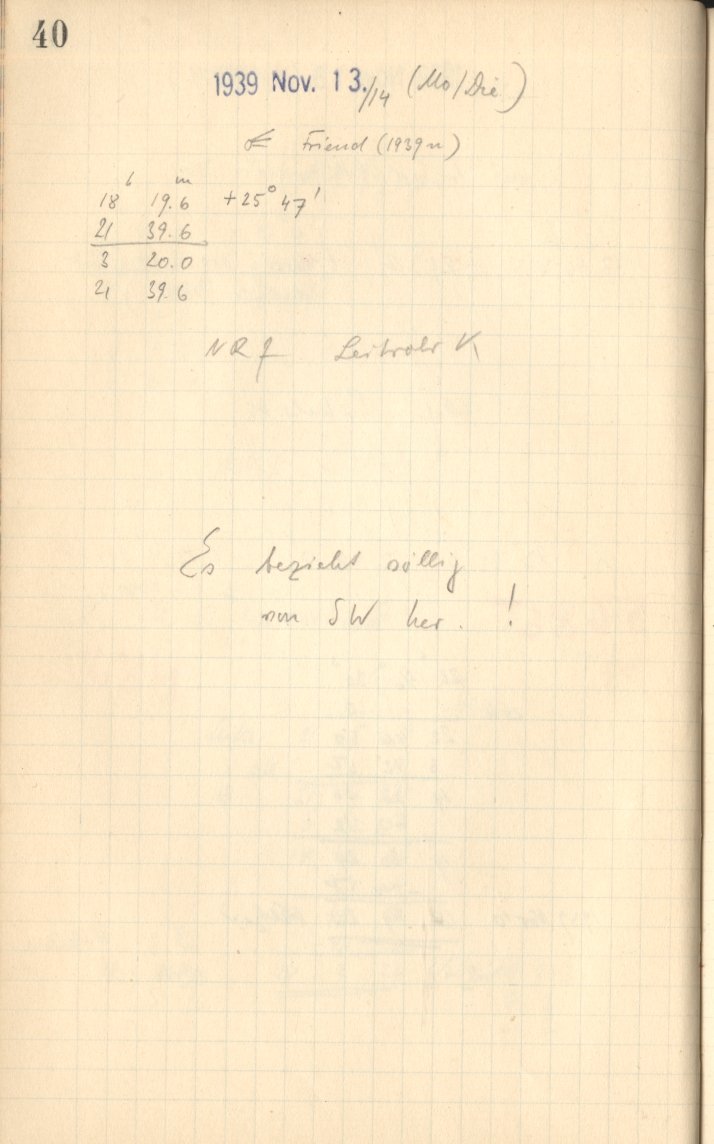 40
1939 Nov. 13./14 (Mo/Die)
Friend (1939n)
h m
18 19.6 +25° 47'
21 39.6
3 20.0
21 39.6
NR 7 Leitrohr K
Es bezieht völlig
von SW her. !